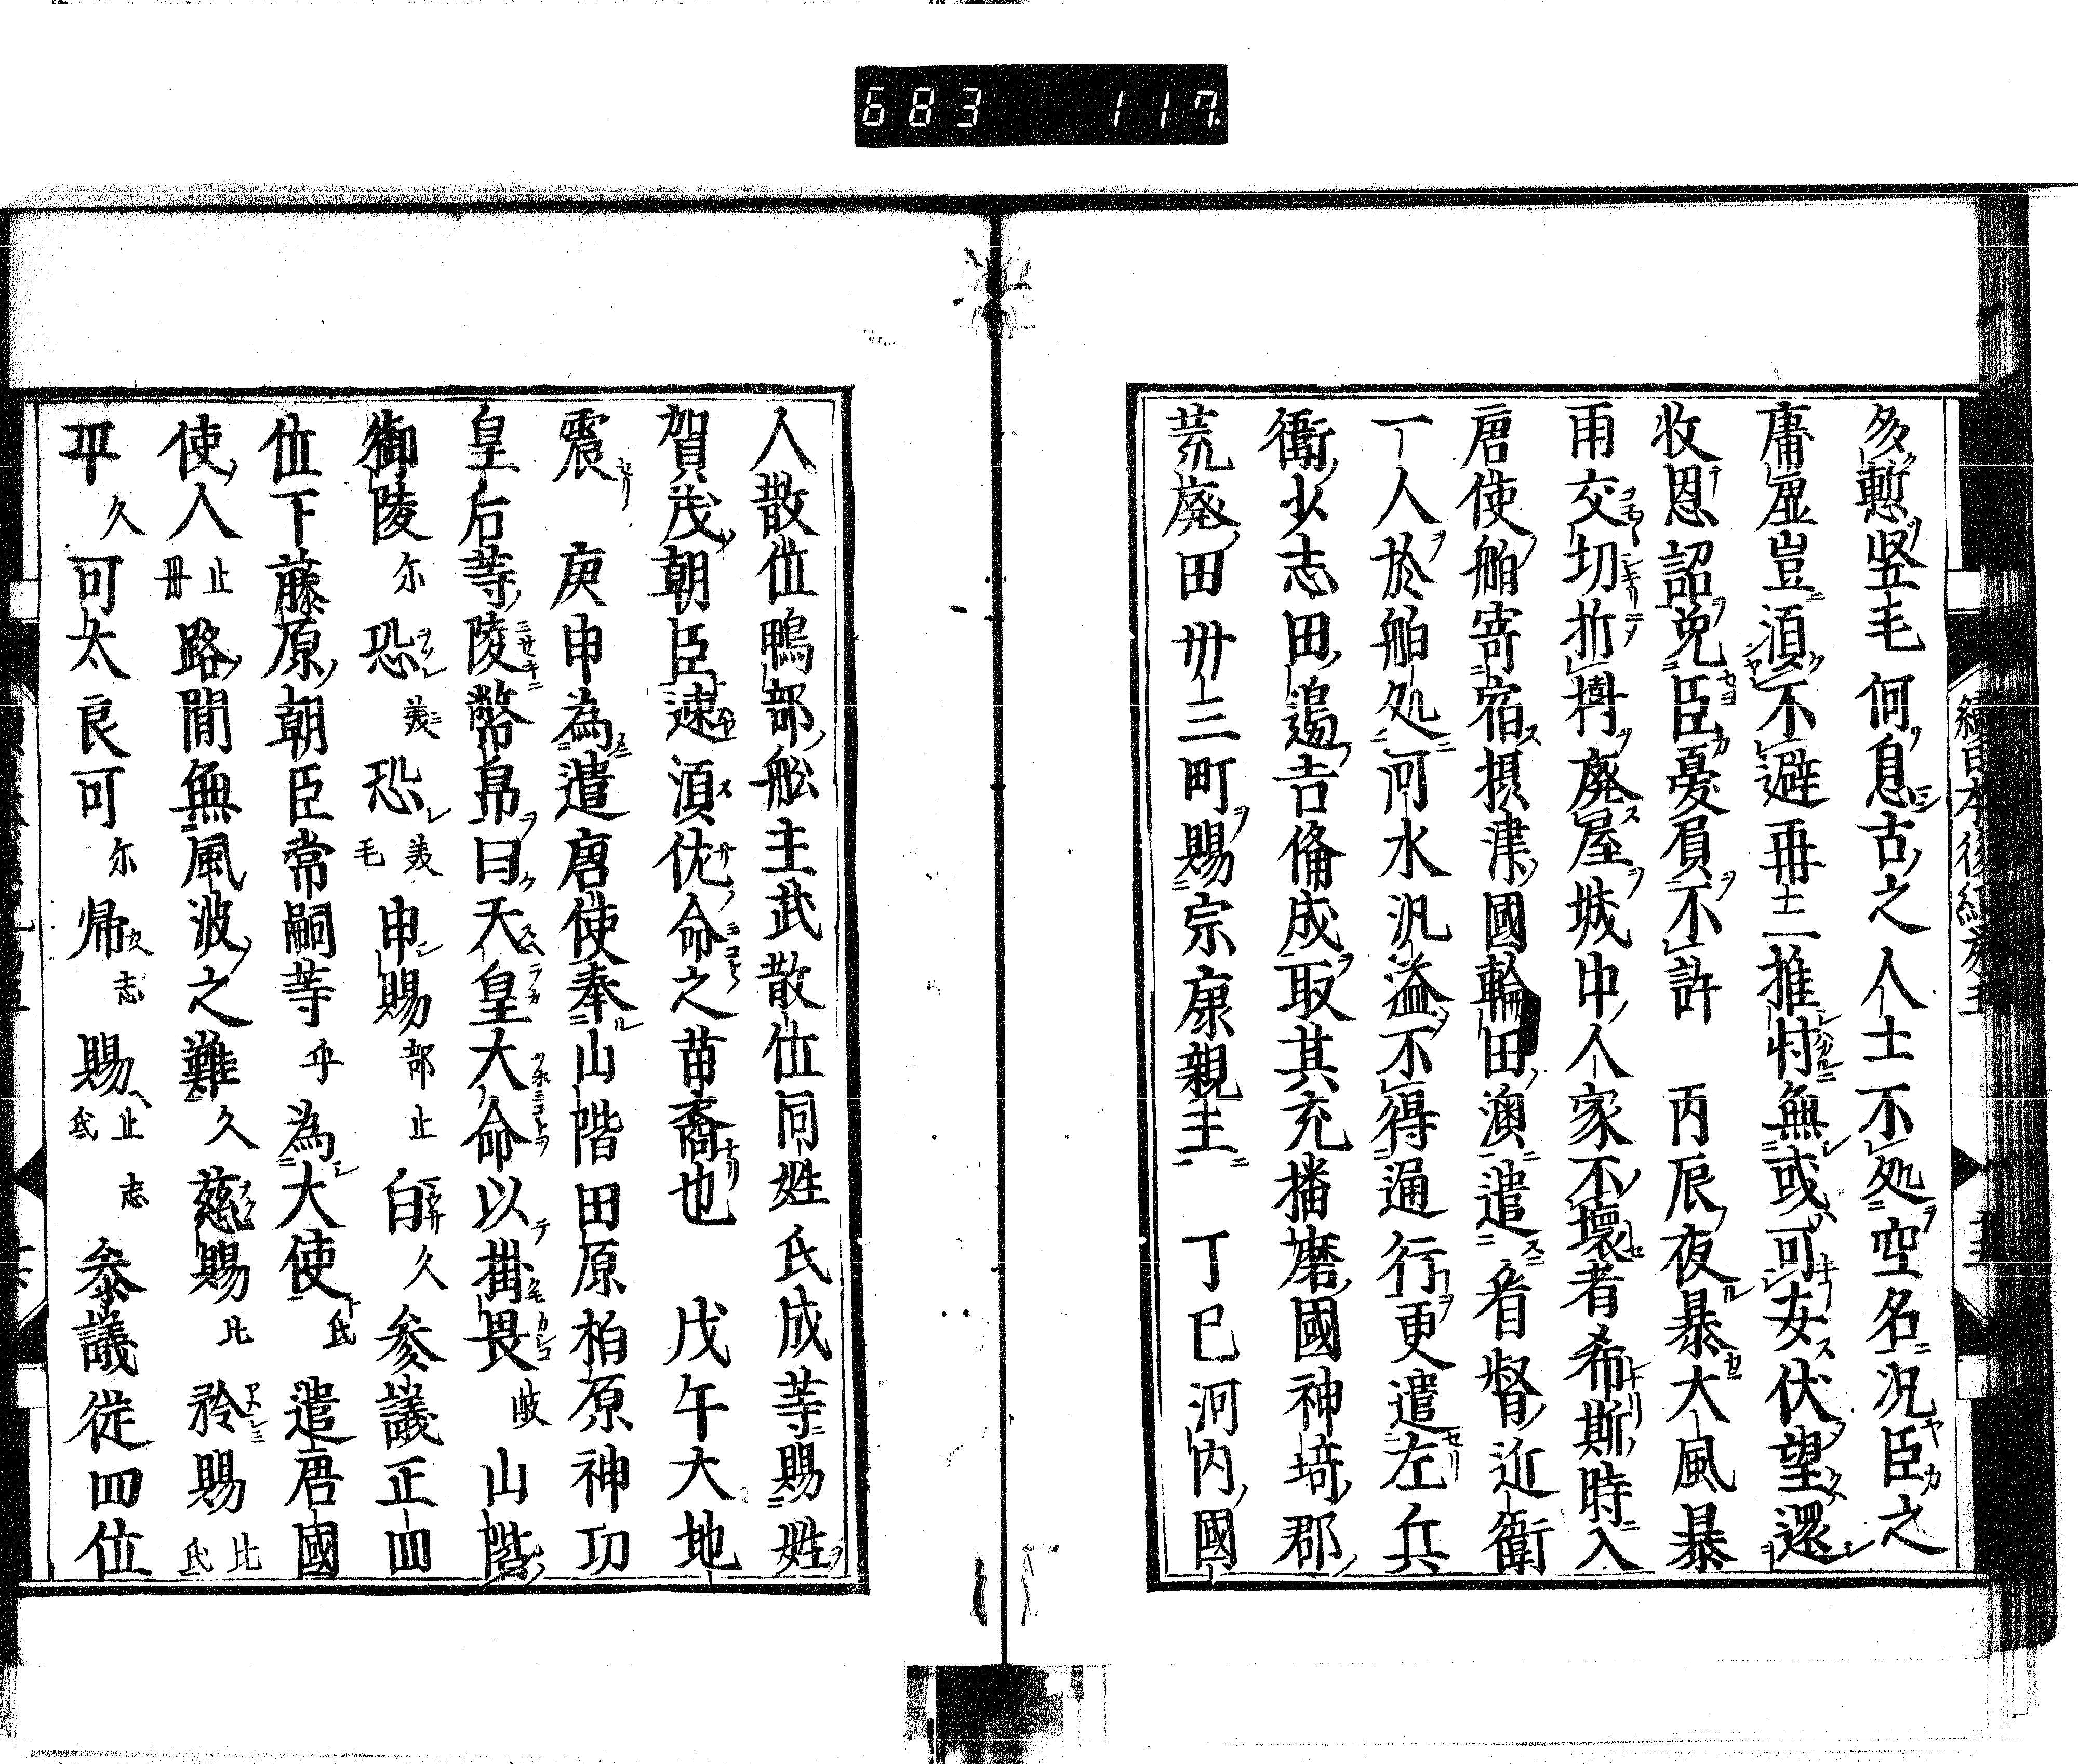 683 117
多慙竖毛何息古之人士不処空名况臣之
庸虚豈湏不避再三推忖無或可安伏望還
收恩詔免臣憂眉不許　丙辰夜暴大風暴
雨交切折樹廃屋城中人家不壞者希斯時入
唐使舶寄宿摂津國輪田澳遣看督近衛
一人於舶処河水汎溢不得通行更遣左兵
衛少志田邉吉備成取其充播磨國神埼郡
荒廃田卅三町賜宗康親王　丁巳河内國
人散位鴨部船主武散位同姓氏成等賜姓
賀茂朝臣速湏佐命之苗裔也　戊午大地
震　庚申為遣唐使奉山階田原柏原神功
皇后等陵幣帛曰天皇大命以掛畏岐山階
御陵尓恐美恐美毛申賜部止白久参議正四
位下藤原朝臣常嗣等乎為大使氐遣唐國
使人止毋路間無風波之難久慈賜比矜賜比氐
平久可太良可尓帰志賜止氐志参議従四位